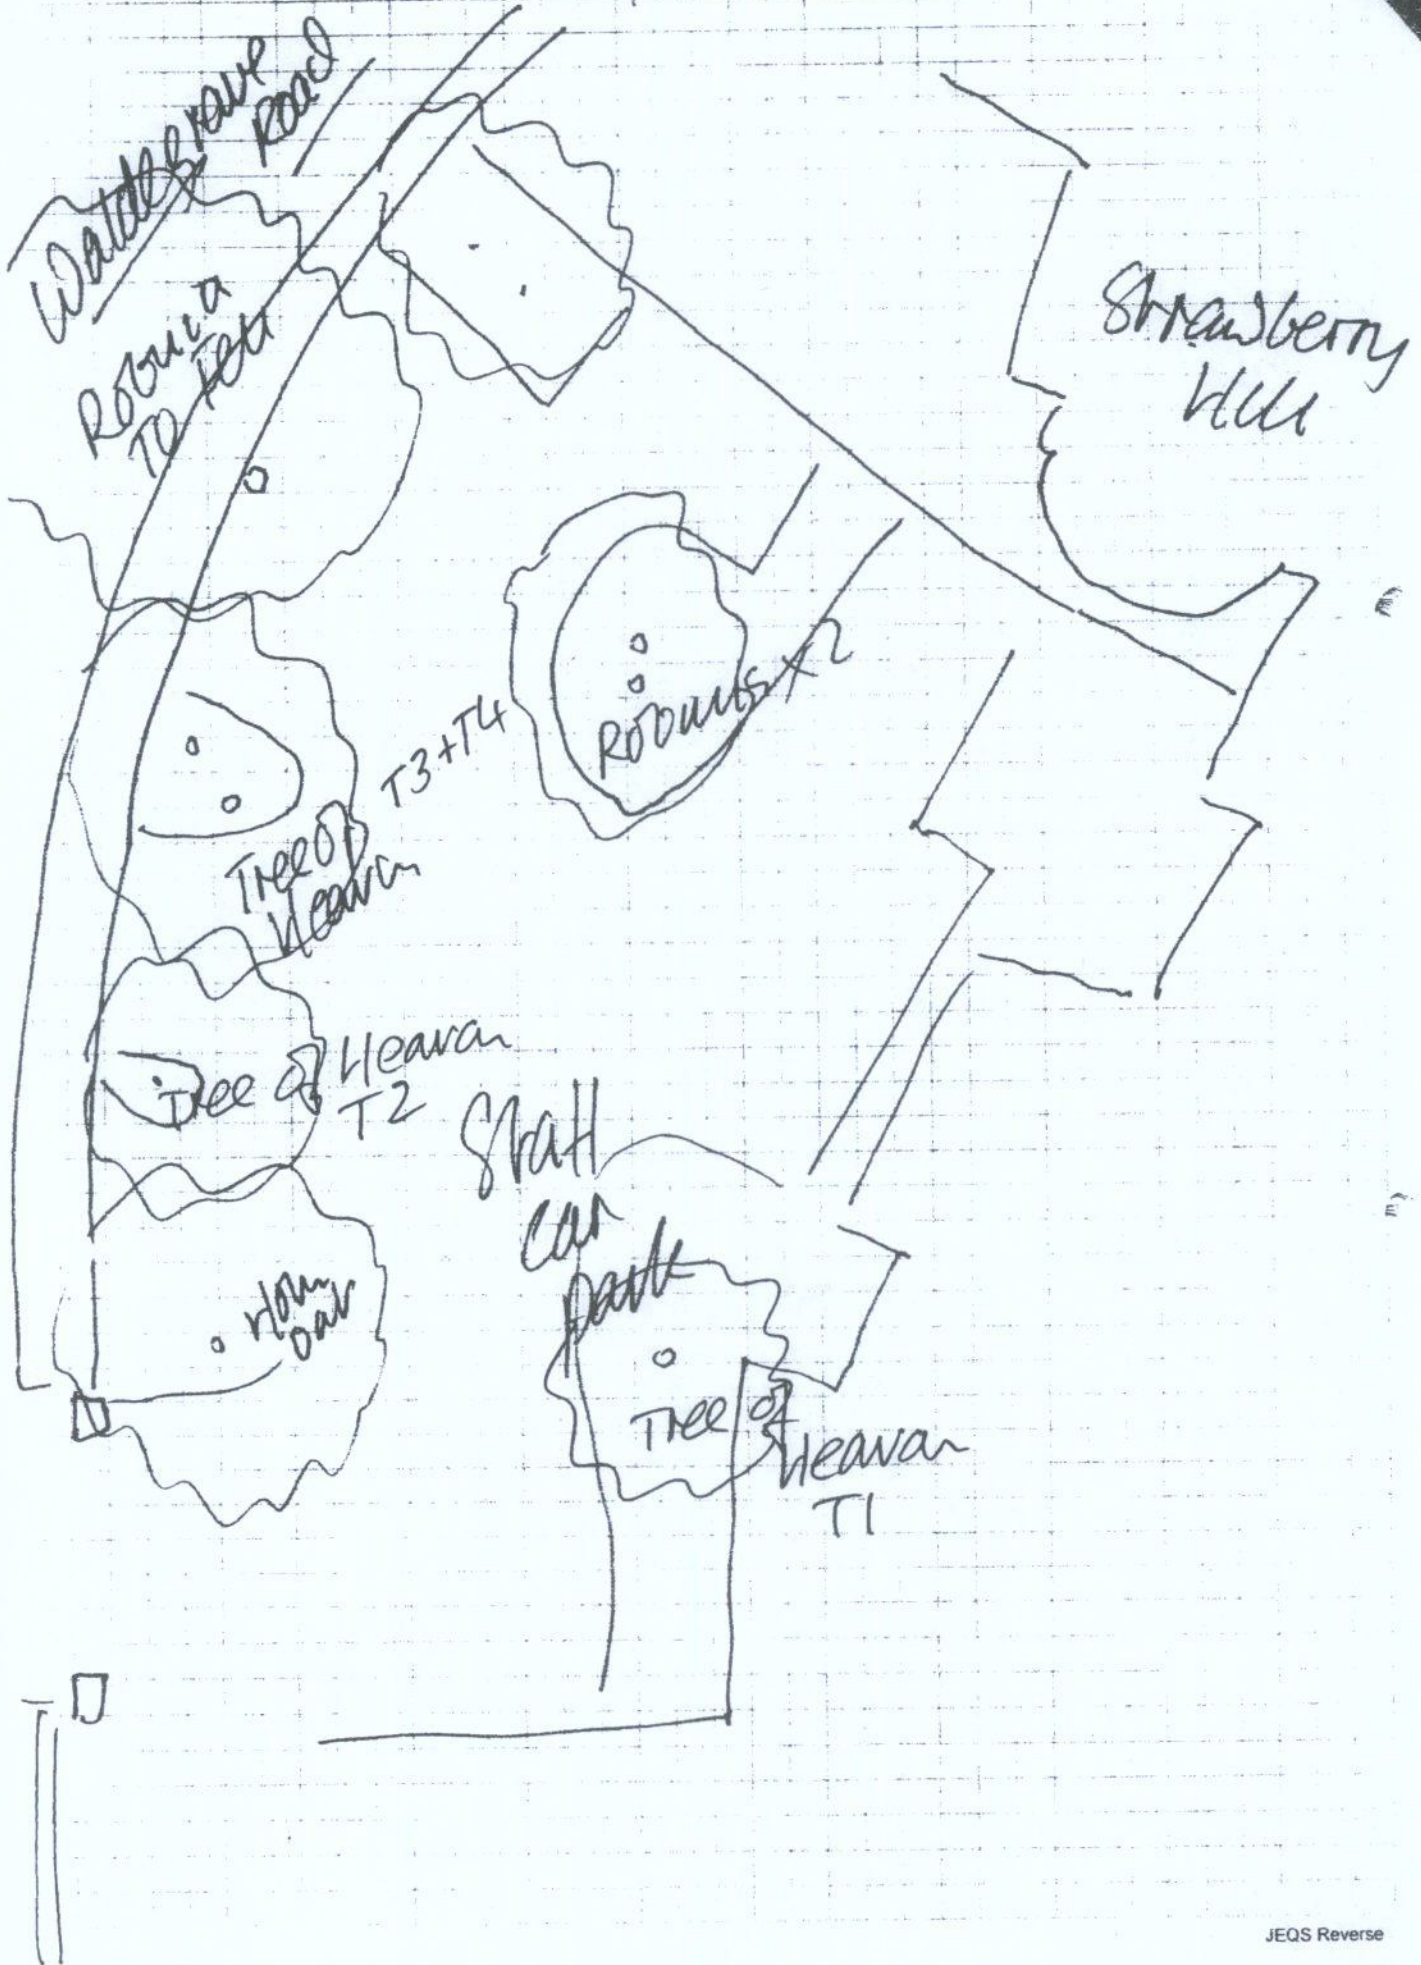 Waldegrave
Road
Robinia
to fell
Strawberry
Hill
Robinias x 2
T3+T4
Tree of
Heaven
Tree of Heaven
T2
Staff
car
park
Holm
oak
Tree of
Heaven
T1
JEQS Reverse